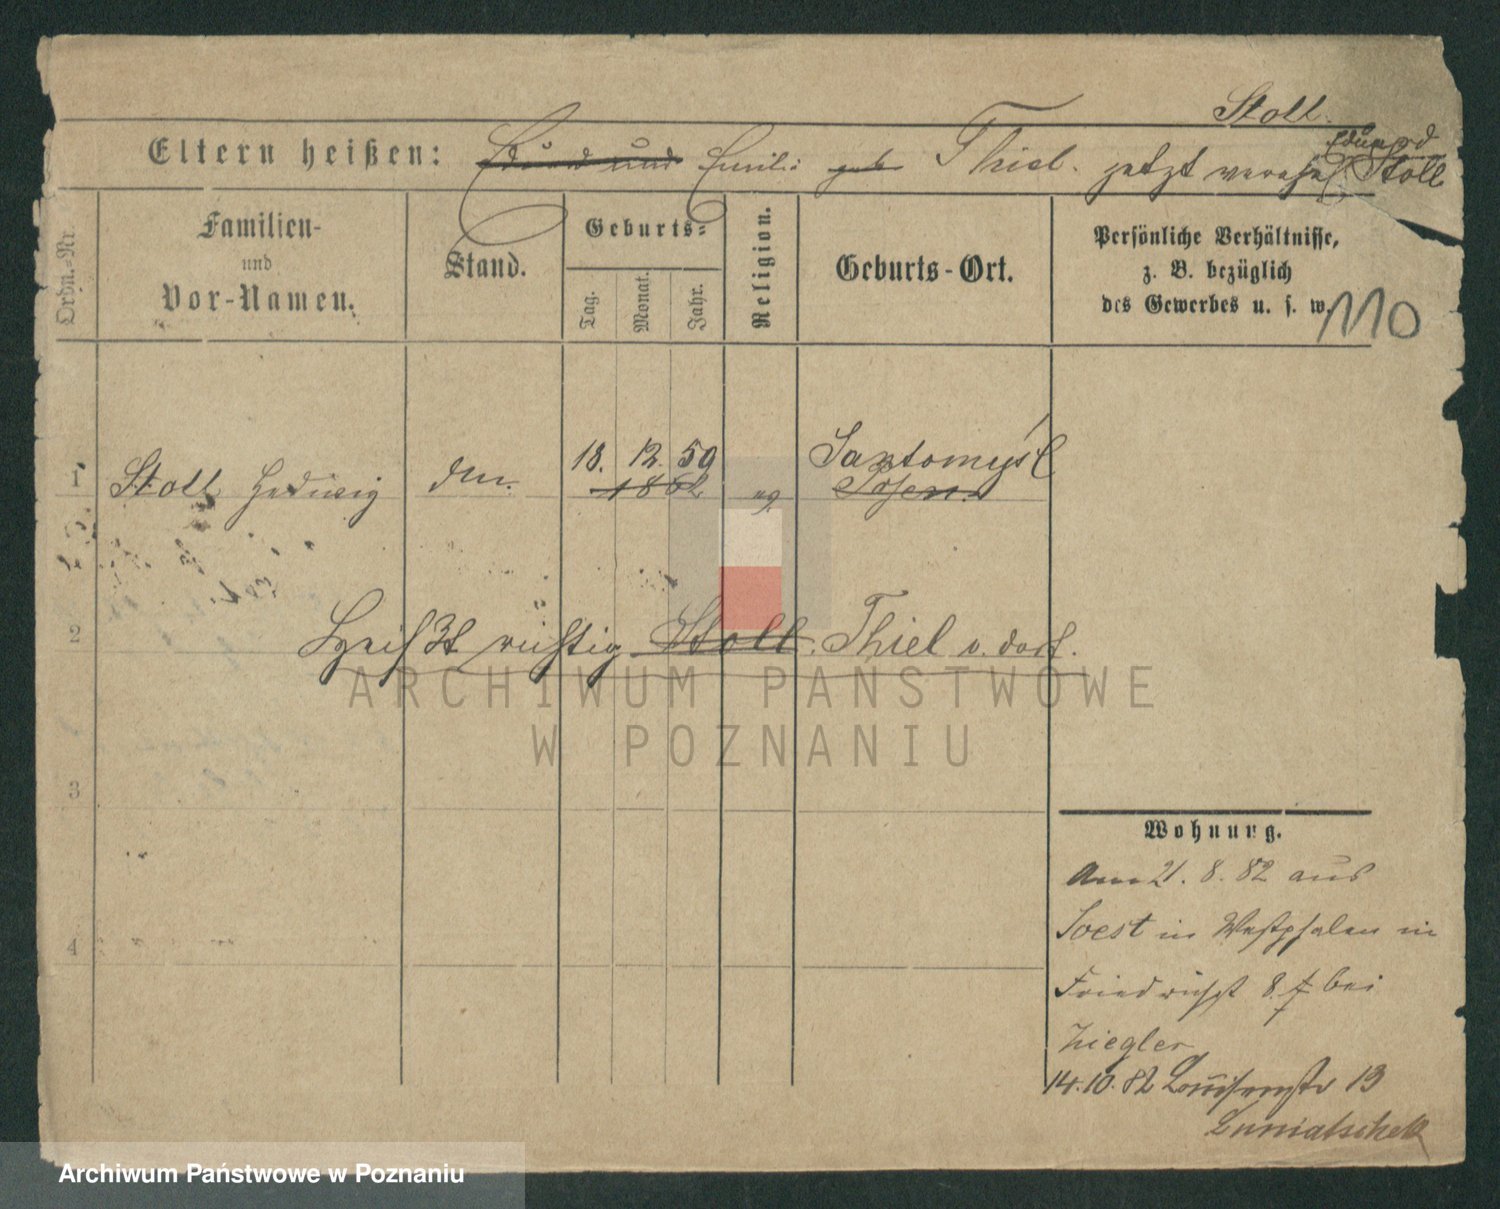 Stoll.
Eltern heißen: Eduard und Emilie geb. Thiel. jetzt verehel. Eduard Stoll
Ordn.-Nr.
Familien-
und
Vor-Namen.
Stand.
Geburts-
Tag.
Monat.
Jahr.
Religion.
Geburts-Ort.
Persönliche Verhältnisse,
z. B. bezüglich
des Gewerbes u. s. w.
110
18. 12. 59 Santomyśl
1 Stoll Hedwig 1862 Posen.
2 Heißt richtig Stoll. Thiel v. dort.
3
4
ARCHIWUM PAŃSTWOWE
W POZNANIU
Wohnung.
Am 21. 8. 82 aus
Soest in Westphalen in
Friedrichst 8. bei
Ziegler
14.10.82 Louisenstr 13
Archiwum Państwowe w Poznaniu